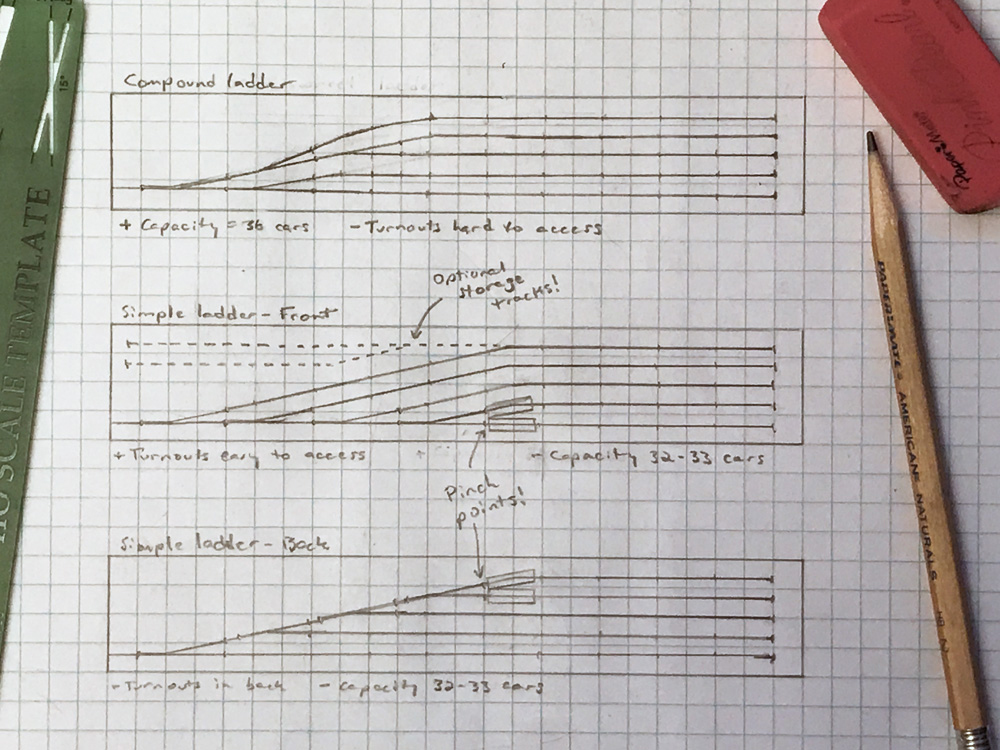 Compound ladder
+ Capacity = 36 cars - Turnouts hard to access
Optional
storage
tracks!
Simple ladder - Front
+ Turnouts easy to access - Capacity 32-33 cars
Pinch
points!
Simple ladder - Back
- Turnouts in back - Capacity 32-33 cars
15°
HO SCALE TEMPLATE
Paper Mate
Pink Pearl
PAPERMATE® AMERICAN NATURALS HB 2